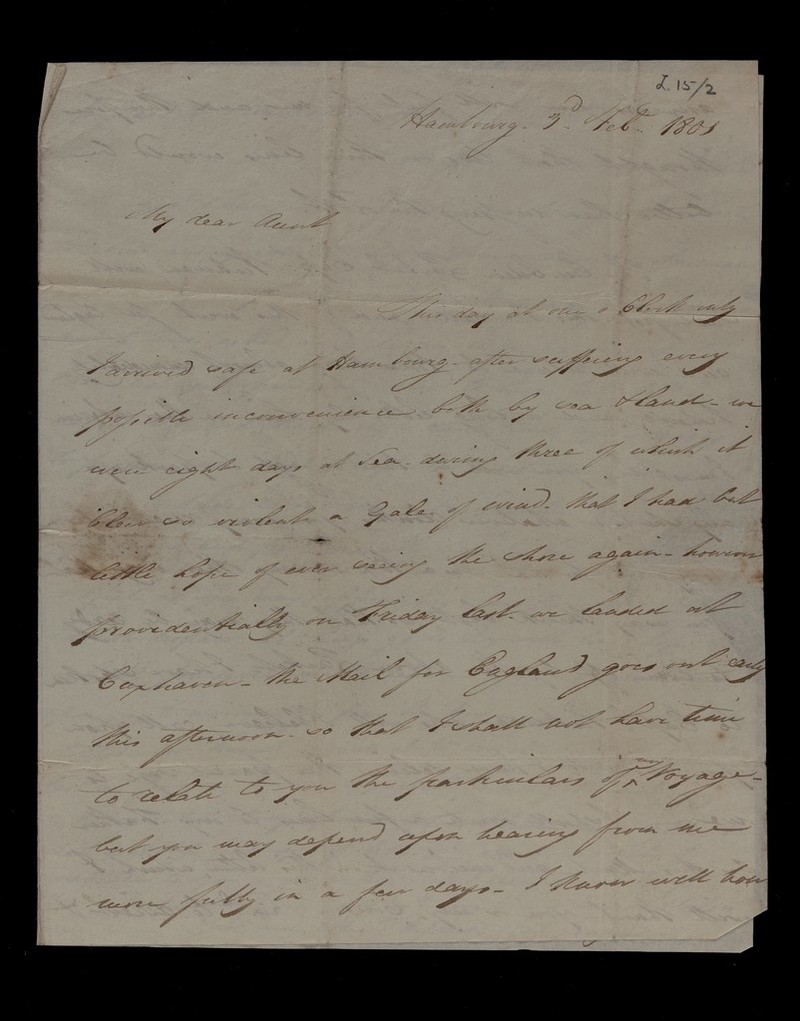 I. 15/2
Hambourg. 3d. Feby. 1801
My dear Aunt
This day at one o Clock only
I arrived safe at Hambourg - after suffering every
possible inconvenience both by sea & land - we
were eight days at Sea. during three of which it
blew so violent a Gale of wind - that I had but
little hope of ever seeing the shore again - however
providentially on Friday last. we landed at
Cuxhaven - the Mail for England goes out early
this afternoon - so that I shall not have time
to relate to you the particulars of my Voyage -
but you may depend upon hearing from me
more fully in a few days - I know well how